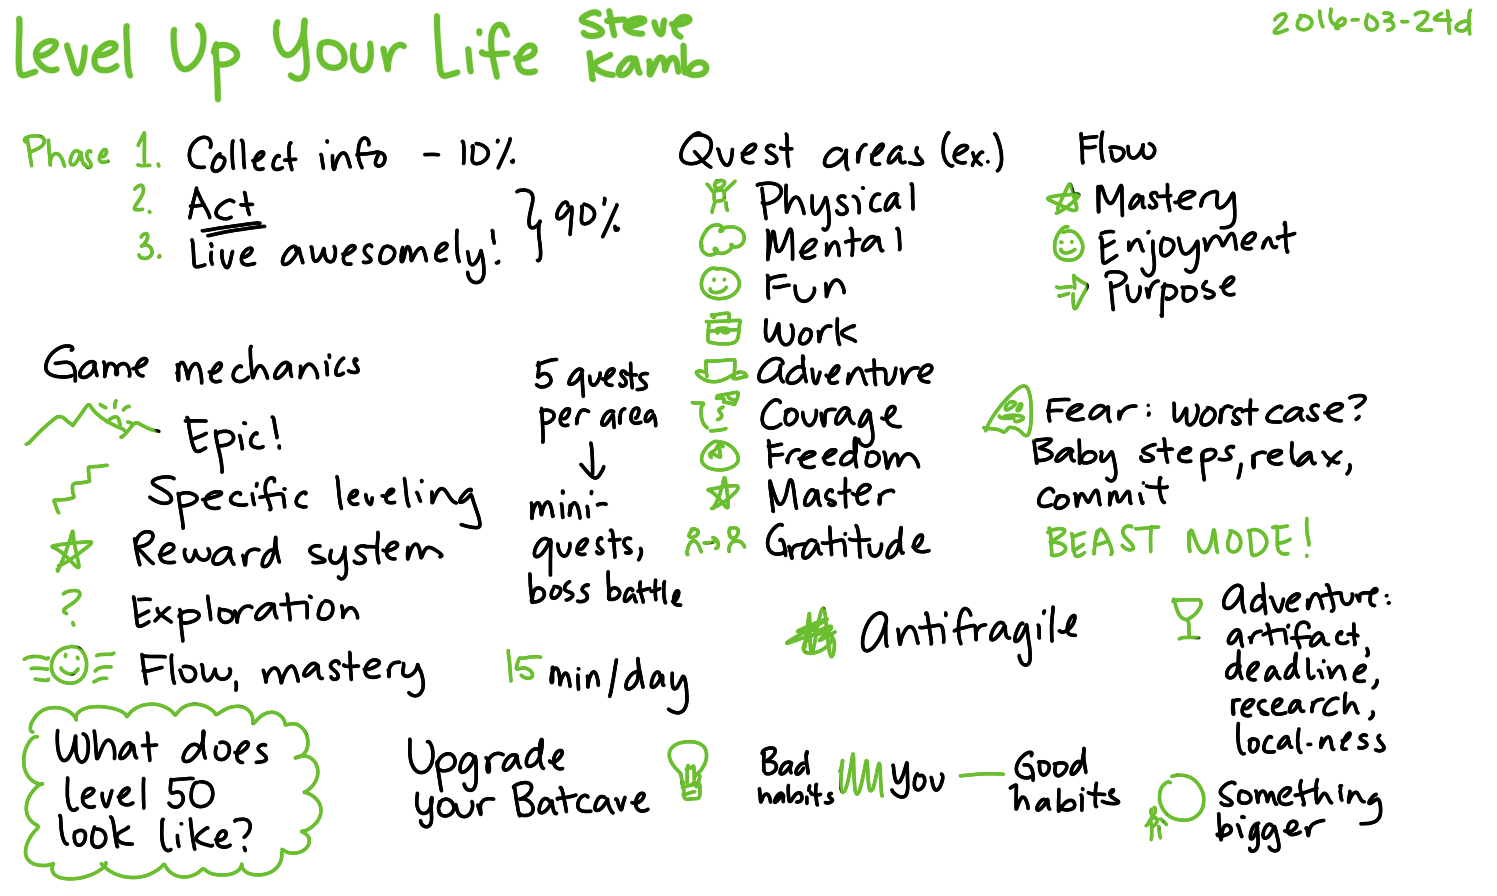 Level Up Your Life
Steve
Kamb
2016-03-24d
Phase 1. Collect info - 10%
2. Act
3. Live awesomely!
} 90%
Quest areas (ex.)
Physical
Mental
Fun
Work
Adventure
Courage
Freedom
Master
Gratitude
Flow
Mastery
Enjoyment
Purpose
Game mechanics
Epic!
Specific leveling
Reward system
? Exploration
Flow, mastery
5 quests
per area
↓
mini-
quests,
boss battle
15 min/day
Fear: worst case?
Baby steps, relax,
commit
BEAST MODE!
Antifragile
Adventure:
artifact,
deadline,
research,
local-ness
What does
level 50
look like?
Upgrade
your Batcave
Bad
habits
You
Good
habits
Something
bigger